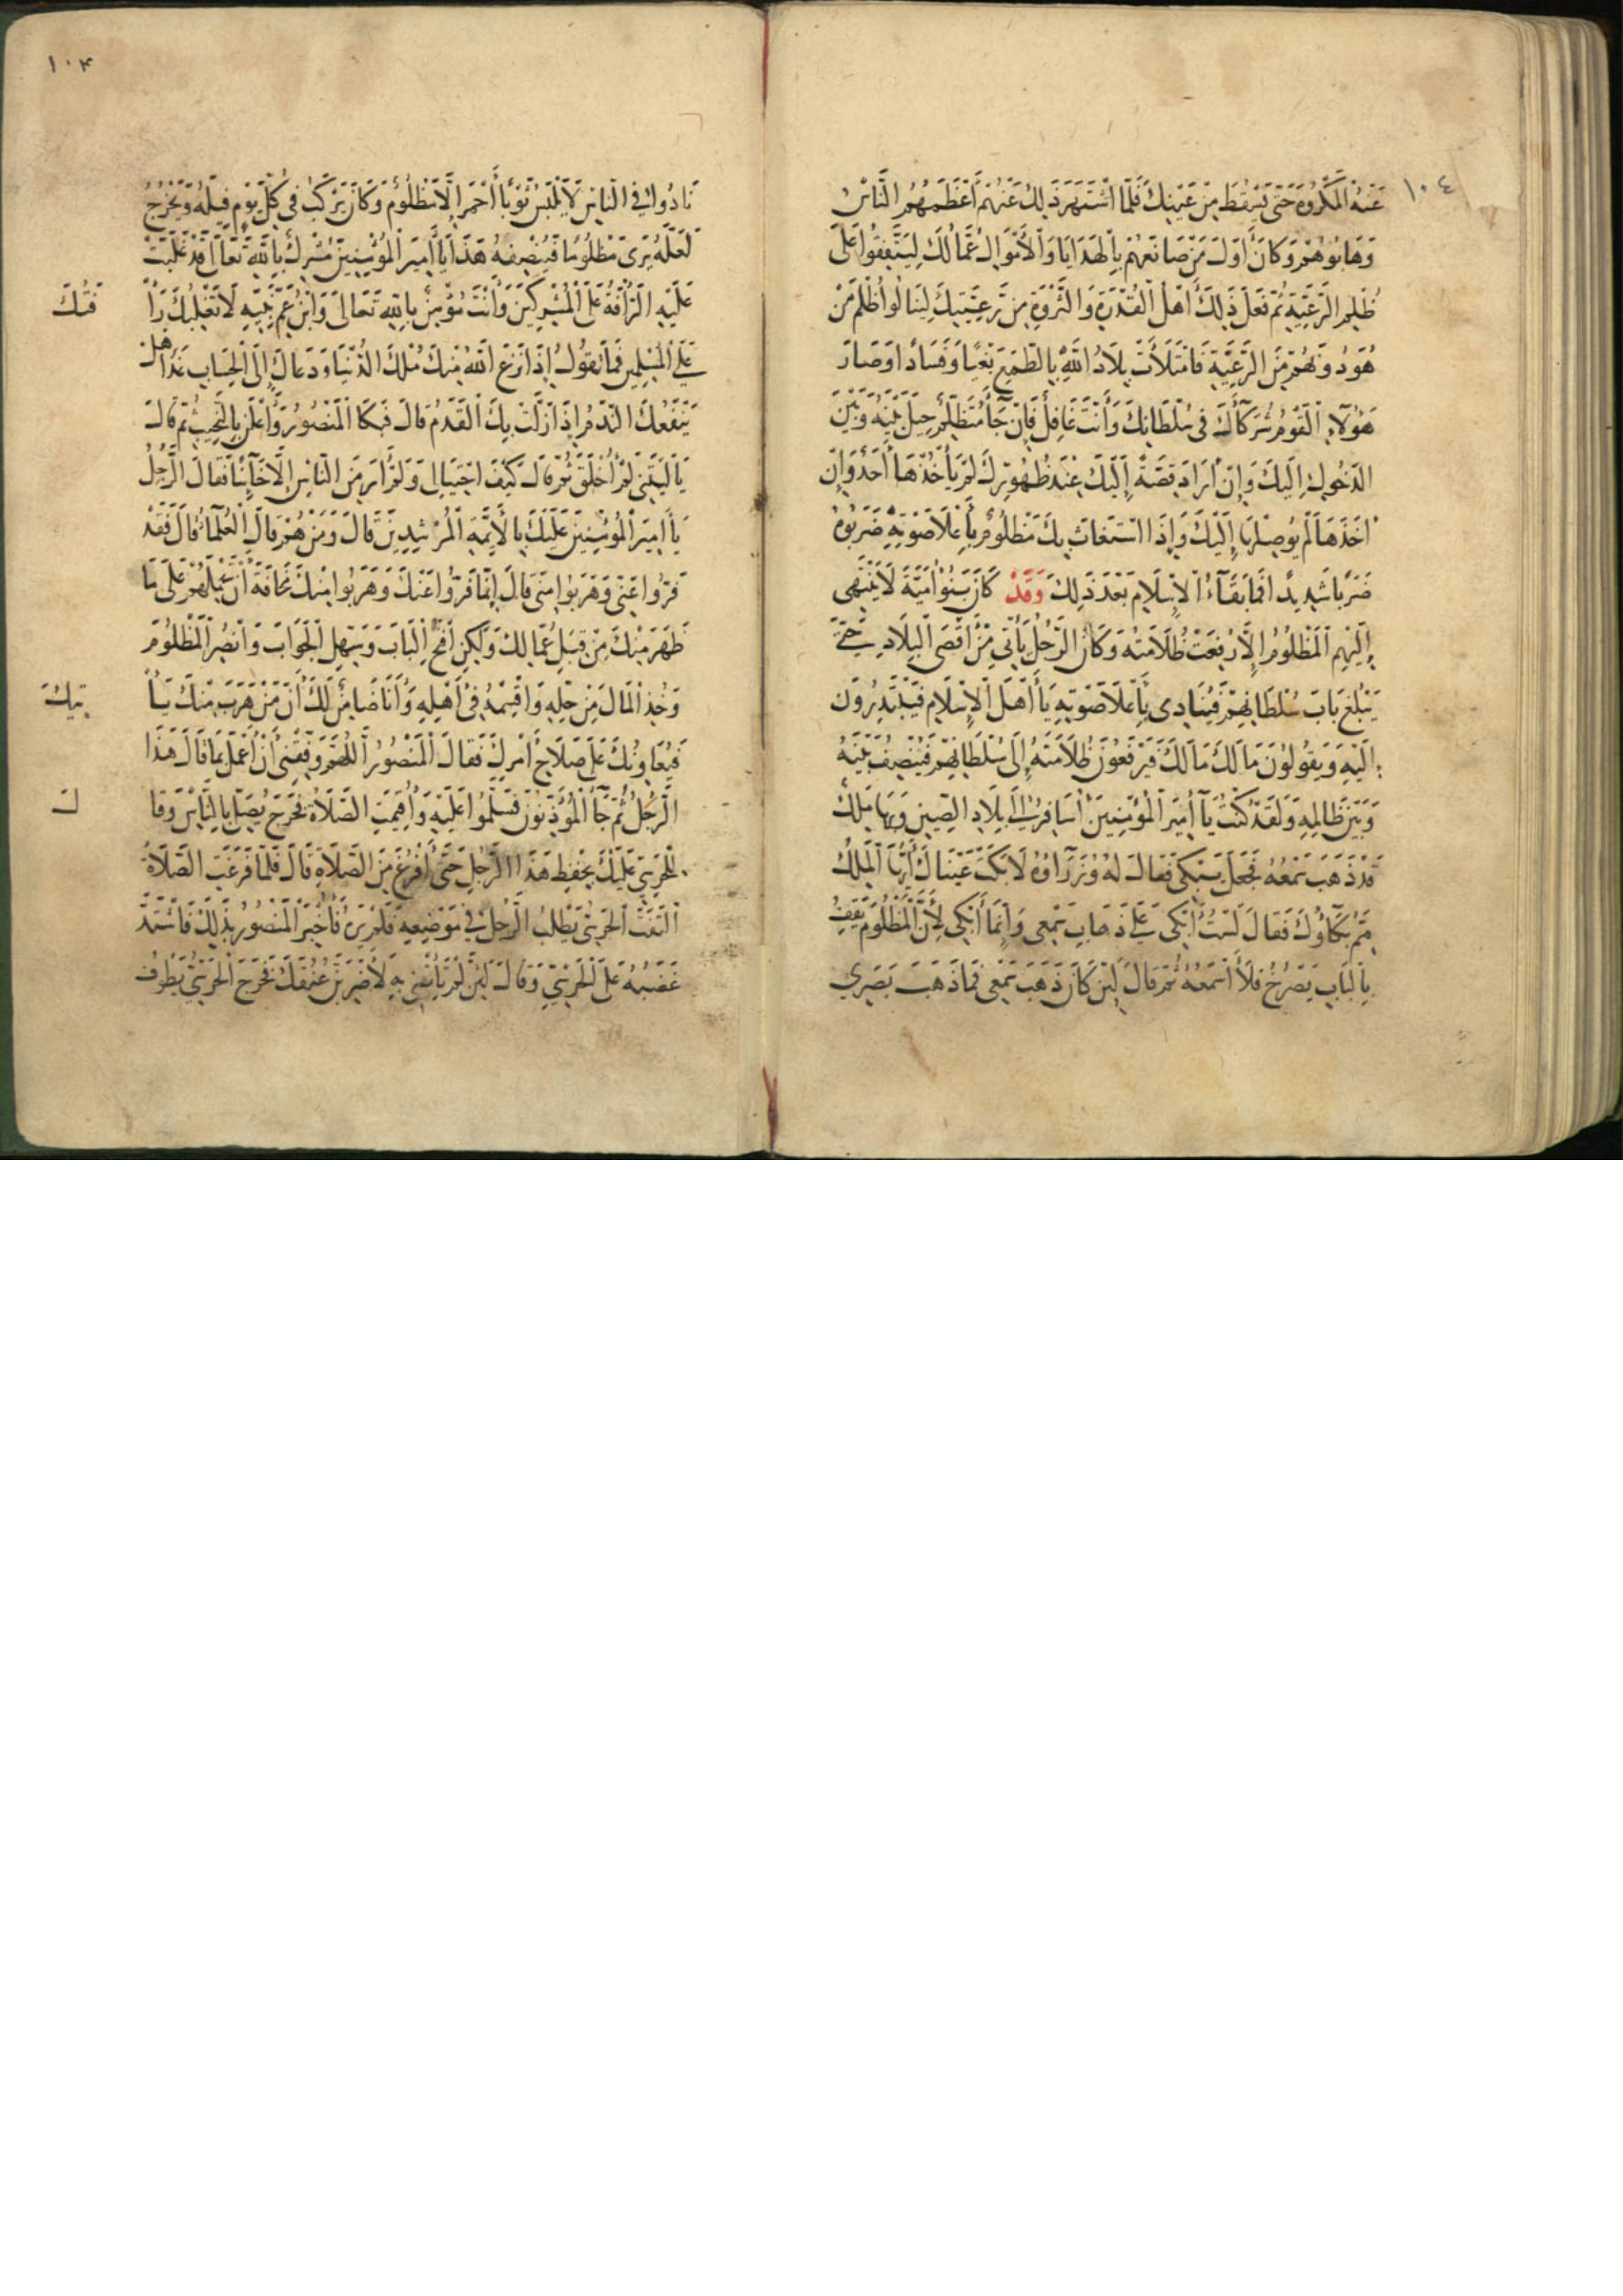 ١٠٤
عَنْهُ الْمَكْرُوهُ حَتَّى يَسْقُطَ مِنْ عَيْنِكَ فَلَمَّا اشْتَهَرَ ذَلِكَ عَنْهُمْ أَعْظَمَهُمُ النَّاسُ
وَهَابُوهُمْ وَكَانَ أَوَّلَ مَنْ صَانَعَهُمْ بِالْهَدَايَا وَالْأَمْوَالِ عُمَّالُكَ لِيَتَّفِقُوا عَلَى
ظُلْمِ الرَّعِيَّةِ ثُمَّ فَعَلَ ذَلِكَ أَهْلُ الْقُدْرَةِ وَالثَّرْوَةِ مِنْ رَعِيَّتِكَ لِيَنَالُوا ظُلْمَ مَنْ
هُوَ دُونَهُمْ مِنَ الرَّعِيَّةِ فَامْتَلَأَتْ بِلَادُ اللَّهِ بِالطَّمَعِ بَغْيًا وَفَسَادًا وَصَارَ
هَؤُلَاءِ الْقَوْمُ شُرَكَاءَكَ فِي سُلْطَانِكَ وَأَنْتَ غَافِلٌ فَإِنْ جَاءَ مُتَظَلِّمٌ حِيلَ بَيْنَهُ وَبَيْنَ
الدُّخُولِ إِلَيْكَ وَإِنْ أَرَادَ قِصَّةً إِلَيْكَ عِنْدَ ظُهُورِكَ لَمْ يَأْخُذْهَا أَحَدٌ وَإِنْ
أَخَذَهَا لَمْ يُوصِلْهَا إِلَيْكَ وَإِذَا اسْتَغَاثَ بِكَ مَظْلُومٌ بِأَعْلَا صَوْتِهِ ضَرَبُوهُ
ضَرْبًا شَدِيدًا فَمَا بَقَاءُ الْإِسْلَامِ بَعْدَ ذَلِكَ وَقَدْ كَانَ بَنُوا أُمَيَّةَ لَا يَنْتَهِي
إِلَيْهِمُ الْمَظْلُومُ إِلَّا رُفِعَتْ ظُلَامَتُهُ وَكَانَ الرَّجُلُ يَأْتِي مِنْ أَقْصَى الْبِلَادِ حَتَّى
يَبْلُغَ بَابَ سُلْطَانِهِمْ فَيُنَادِي بِأَعْلَا صَوْتِهِ يَا أَهْلَ الْإِسْلَامِ فَيَبْتَدِرُونَ
إِلَيْهِ وَيَقُولُونَ مَا لَكَ مَا لَكَ فَيَرْفَعُونَ ظُلَامَتَهُ إِلَى سُلْطَانِهِمْ فَيُنْصِفُ بَيْنَهُ
وَبَيْنَ ظَالِمِهِ وَلَقَدْ كُنْتُ يَا أَمِيرَ الْمُؤْمِنِينَ أُسَافِرُ إِلَى بِلَادِ الصِّينِ وَبِهَا مَلِكٌ
قَدْ ذَهَبَ سَمْعُهُ فَجَعَلَ يَبْكِي فَقَالَ لَهُ وُزَرَاؤُهُ لَا بَكَتْ عَيْنَاكَ أَيُّهَا الْمَلِكُ
مِمَّ بُكَاؤُكَ فَقَالَ لَسْتُ أَبْكِي عَلَى ذَهَابِ سَمْعِي وَإِنَّمَا أَبْكِي لِأَنَّ الْمَظْلُومَ يَقِفُ
بِالْبَابِ يَصْرُخُ فَلَا أَسْمَعُهُ ثُمَّ قَالَ لَئِنْ كَانَ ذَهَبَ سَمْعِي فَمَا ذَهَبَ بَصَرِي
١٠٤
نَادُوا فِي النَّاسِ لَا يَلْبَسْ ثَوْبًا أَحْمَرَ إِلَّا مَظْلُومٌ وَكَانَ يَرْكَبُ فِي كُلِّ يَوْمٍ فِيلَهُ وَيَخْرُجُ
لَعَلَّهُ يَرَى مَظْلُومًا فَيُنْصِفَهُ هَذَا يَا أَمِيرَ الْمُؤْمِنِينَ مُشْرِكٌ بِاللَّهِ تَعَالَى قَدْ غَلَبَتْ
عَلَيْهِ الرَّأْفَةُ عَلَى الْمُشْرِكِينَ وَأَنْتَ مُؤْمِنٌ بِاللَّهِ تَعَالَى وَابْنُ عَمِّ نَبِيِّهِ لَا تَغْلِبُكَ رَأْ
فَتُكَ
عَلَى الْمُسْلِمِينَ فَمَا تَقُولُ إِذَا نَزَعَ اللَّهُ مِنْكَ مُلْكَ الدُّنْيَا وَدَعَاكَ إِلَى الْحِسَابِ غَدًا هل
يَنْفَعُكَ النَّدَمُ إِذَا زَلَّتْ بِكَ الْقَدَمُ قَالَ فَبَكَا الْمَنْصُورُ وَأَعْلَنَ بِالنَّحِيبِ ثُمَّ قَالَ
يَا لَيْتَنِي لَمْ أُخْلَقْ ثُمَّ قَالَ كَيْفَ احْتِيَالِي وَلَمْ أَرَ مِنَ النَّاسِ إِلَّا خَائِنًا فَقَالَ الرَّجُلُ
يَا أَمِيرَ الْمُؤْمِنِينَ عَلَيْكَ بِالْأَئِمَّةِ الْمُرْشِدِينَ قَالَ وَمَنْ هُمْ قَالَ الْعُلَمَاءُ قَالَ فَقَدْ
فَرُّوا عَنِّي وَهَرَبُوا مِنِّي قَالَ إِنَّمَا فَرُّوا عَنْكَ وَهَرَبُوا مِنْكَ مَخَافَةَ أَنْ تَحْمِلَهُمْ عَلَى مَا
ظَهَرَ مِنْكَ مِنْ قِبَلِ عُمَّالِكَ وَلَكِنِ افْتَحِ الْبَابَ وَسَهِّلِ الْحِجَابَ وَانْصُرِ الْمَظْلُومَ
وَخُذِ الْمَالَ مِنْ حِلِّهِ وَاقْسِمْهُ فِي أَهْلِهِ وَأَنَا ضَامِنٌ لَكَ أَنَّ مَنْ هَرَبَ مِنْكَ يَأْ
تِيكَ
فَيُعَاوِنُكَ عَلَى صَلَاحِ أَمْرِكَ فَقَالَ الْمَنْصُورُ اللَّهُمَّ وَفِّقْنِي أَنْ أَعْمَلَ بِمَا قَالَ هَذَا
الرَّجُلُ ثُمَّ جَاءَ الْمُؤَذِّنُونَ فَسَلَّمُوا عَلَيْهِ وَأُقِيمَتِ الصَّلَاةُ فَخَرَجَ يُصَلِّي بِالنَّاسِ وَقَا
لَ
لِلْحَرَسِيِّ عَلَيْكَ بِحِفْظِ هَذَا الرَّجُلِ حَتَّى أَفْرُغَ مِنَ الصَّلَاةِ قَالَ فَلَمَّا فَرَغَتِ الصَّلَاةُ
الْتَفَتَ الْحَرَسِيُّ يَطْلُبُ الرَّجُلَ فِي مَوْضِعِهِ فَلَمْ يَرَهُ فَأُخْبِرَ الْمَنْصُورُ بِذَلِكَ فَاشْتَدَّ
غَضَبُهُ عَلَى الْحَرَسِيِّ وَقَالَ لَئِنْ لَمْ تَأْتِنِي بِهِ لَأَضْرِبَنَّ عُنُقَكَ فَخَرَجَ الْحَرَسِيُّ يَطُوفُ